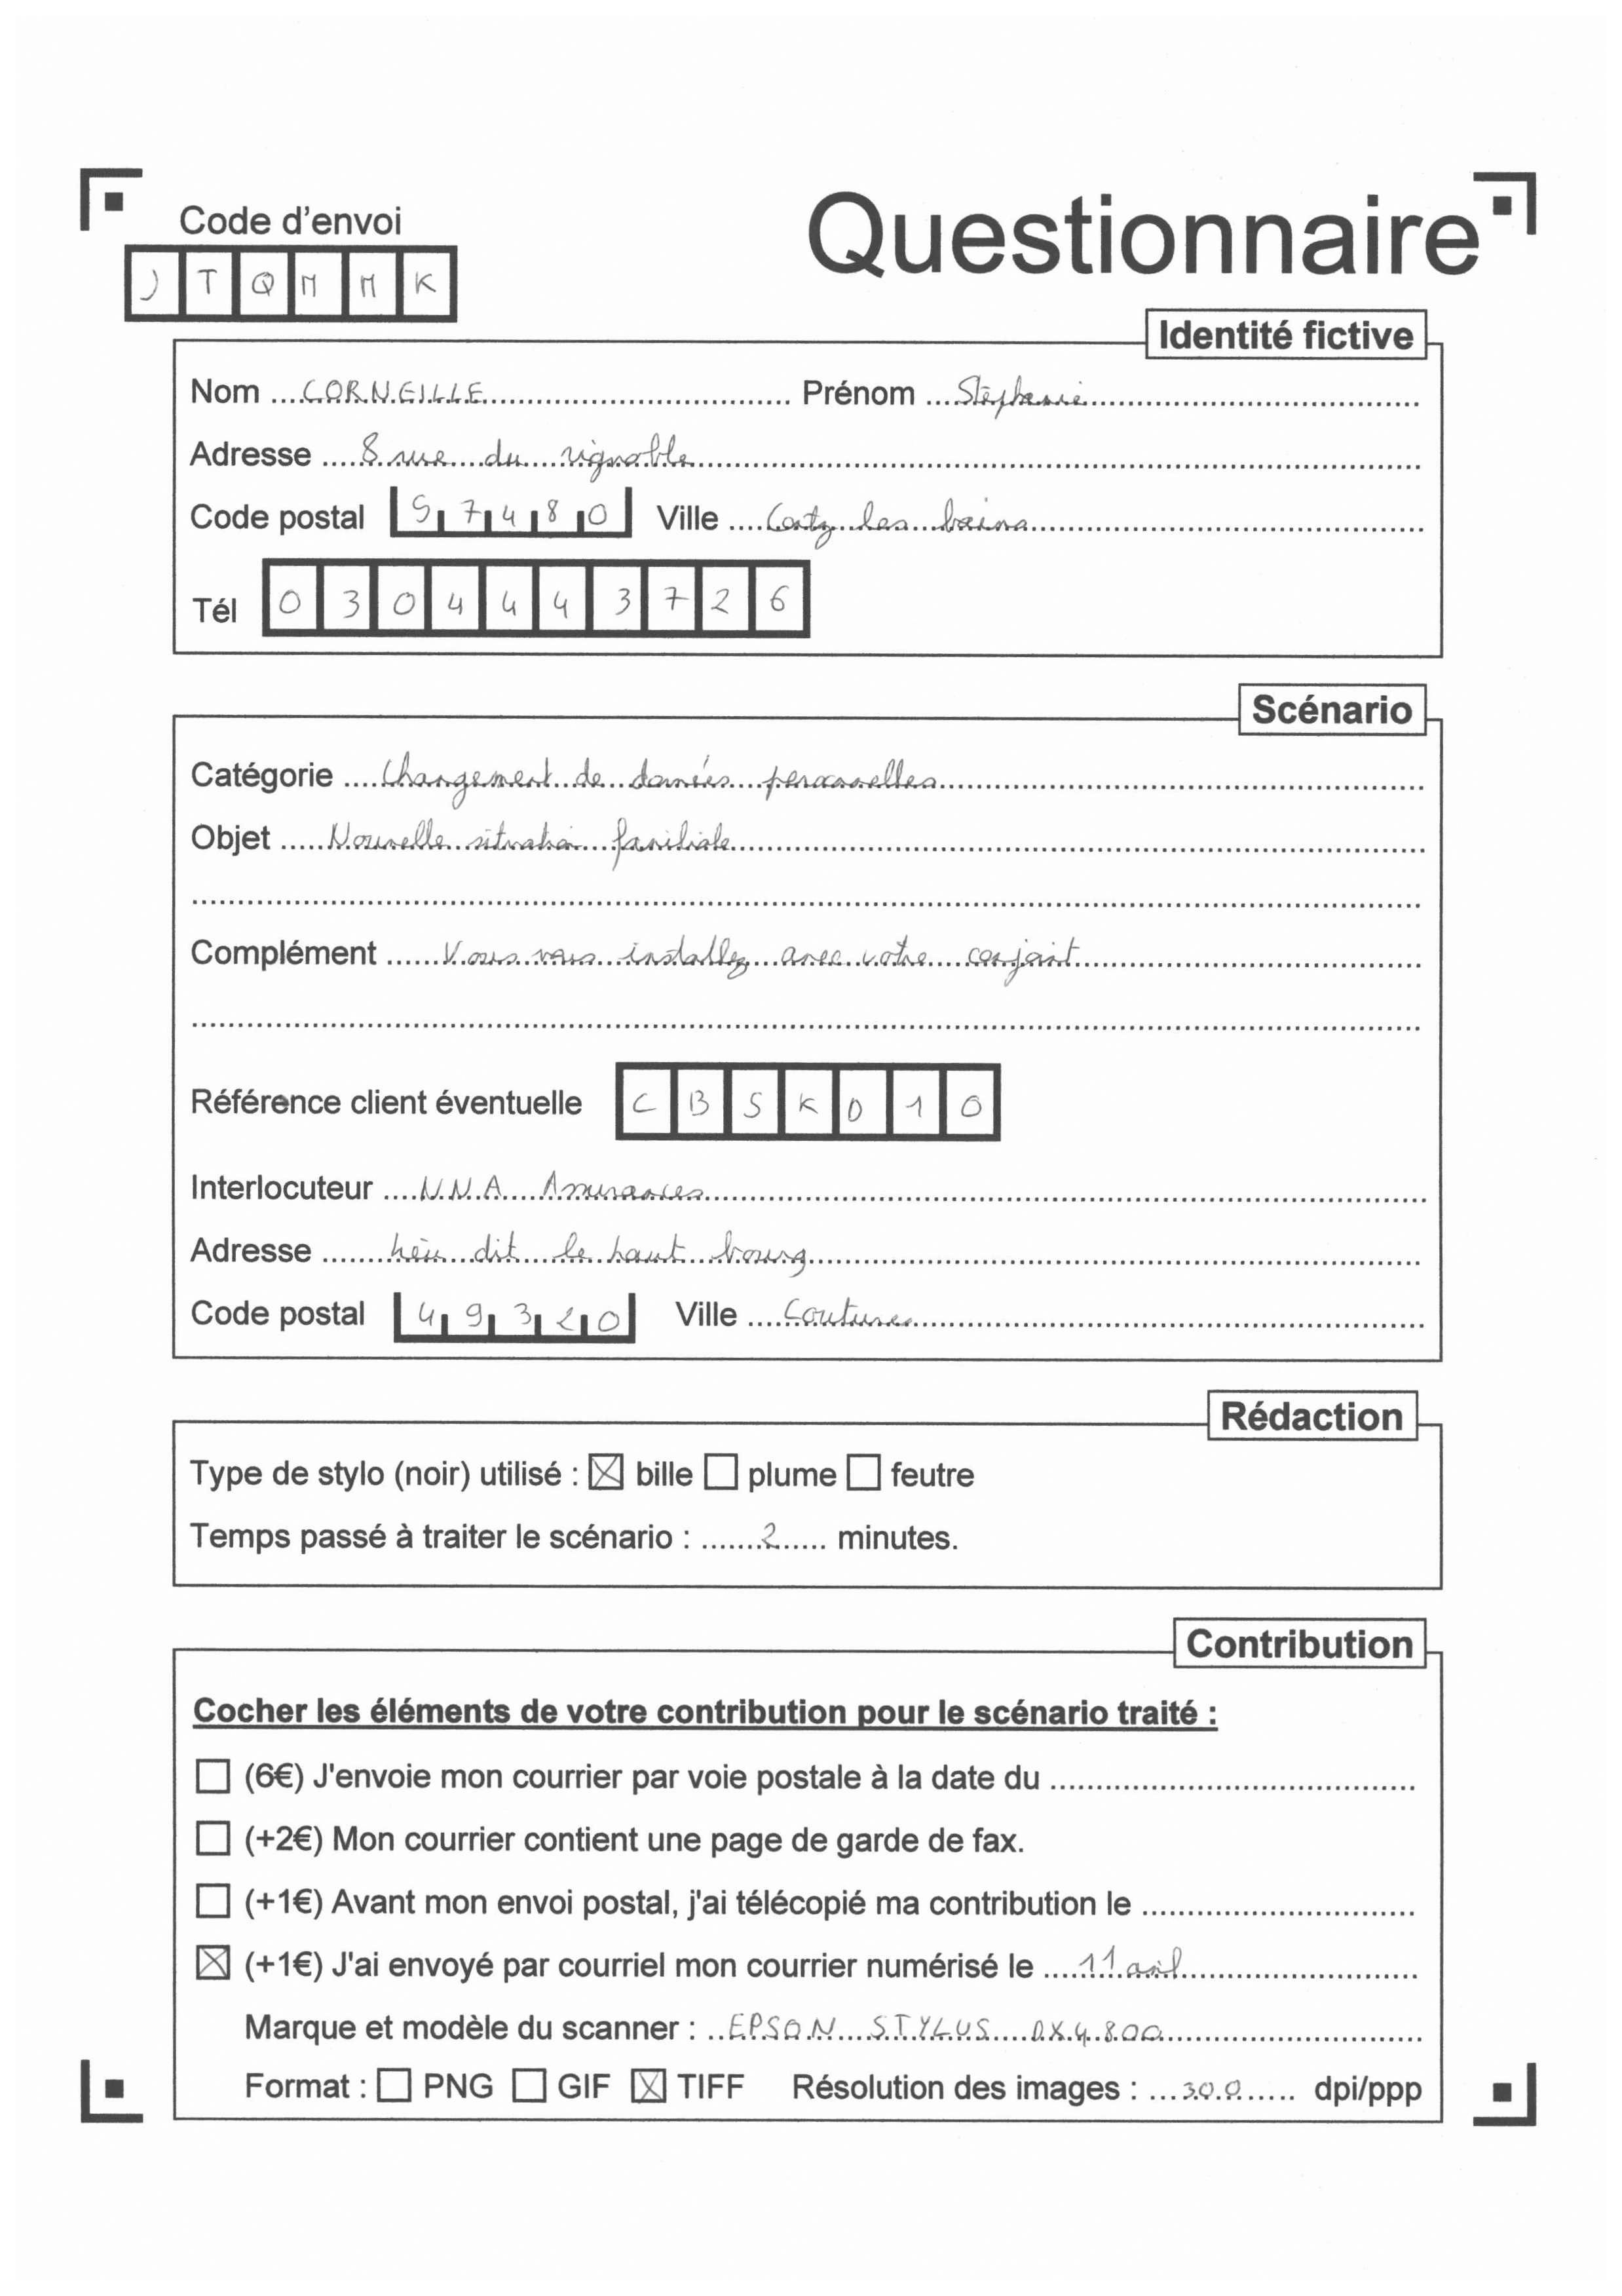 Code d'envoi
JTQMMK
Questionnaire
Identité fictive
Nom CORNEILLE Prénom Stéphanie
Adresse 8 rue du vignoble
Code postal 57480 Ville Contz les bains
Tél 0304443726
Scénario
Catégorie Changement de données personnelles
Objet Nouvelle situation familiale
Complément Vous vous installez avec votre conjoint
Référence client éventuelle CBSKD10
Interlocuteur NNA Assurances
Adresse lieu dit le haut bourg
Code postal 49320 Ville Coutures
Rédaction
Type de stylo (noir) utilisé : ☒ bille ☐ plume ☐ feutre
Temps passé à traiter le scénario : 2 minutes.
Contribution
Cocher les éléments de votre contribution pour le scénario traité :
☐ (6€) J'envoie mon courrier par voie postale à la date du
☐ (+2€) Mon courrier contient une page de garde de fax.
☐ (+1€) Avant mon envoi postal, j'ai télécopié ma contribution le
☒ (+1€) J'ai envoyé par courriel mon courrier numérisé le 11 avril
Marque et modèle du scanner : EPSON STYLUS DX4800
Format : ☐ PNG ☐ GIF ☒ TIFF Résolution des images : 300 dpi/ppp